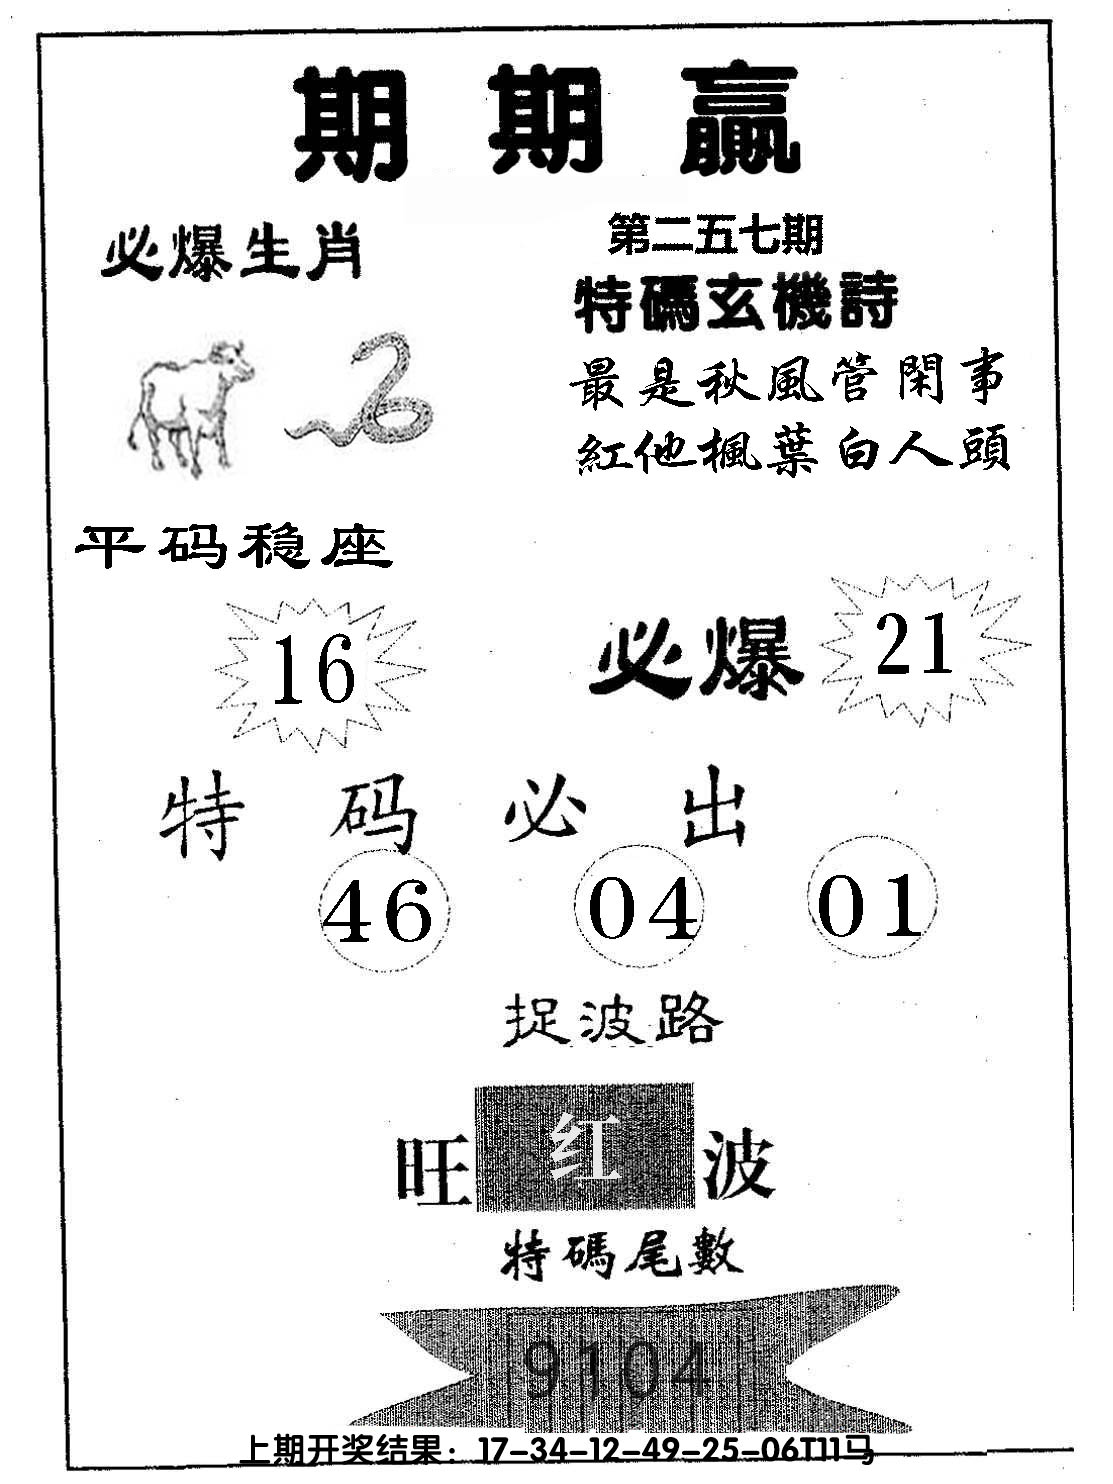 期期赢
必爆生肖
第二五七期
特碼玄機詩
最是秋風管閑事
紅他楓葉白人頭
平码稳座
16
必爆 21
特码必出
46 04 01
捉波路
旺 红 波
特碼尾數
9104
上期开奖结果：17-34-12-49-25-06T11马